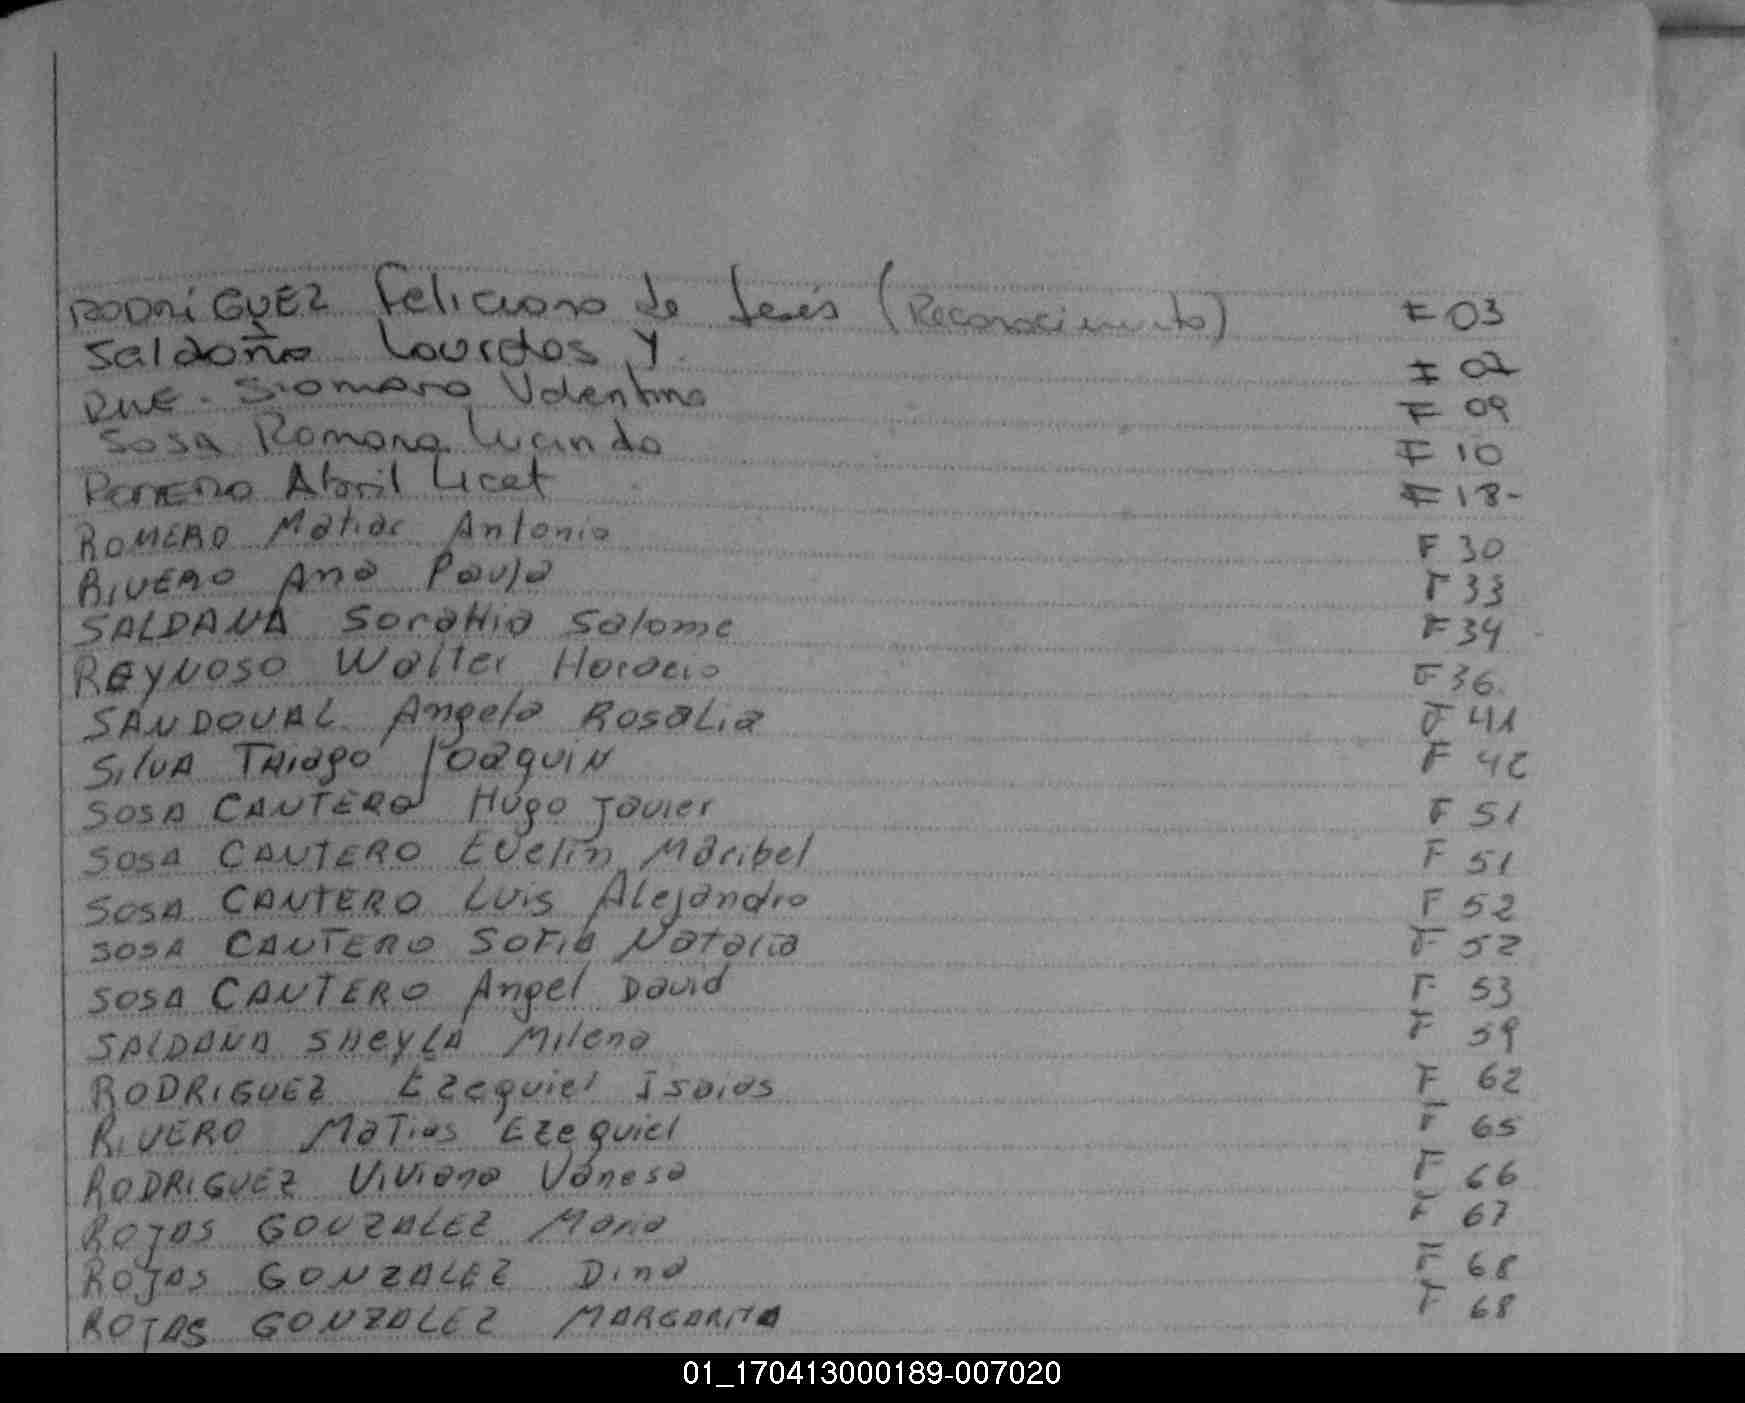 RODRÍGUEZ Feliciano de Jesús (Reconocimiento) F 03
Saldaño Lourdes Y. F 07
RUE. Siomara Valentina F 09
SOSA Romana Lucinda F 10
ROMERO Abril Licet F 18-
ROMERO Matias Antonio F 30
RIVERO Ana Paula F 33
SALDANA Sorathia Salome F 34
REYNOSO Walter Horacio F 36.
SANDOVAL Angela ROSALia F 41
SilVA THiago JOaquiN F 42
SOSA CANTERO Hugo Javier F 51
SOSA CANTERO EVelin Maribel F 51
SOSA CANTERO Luis Alejandro F 52
SOSA CANTERO SOFia Natalia F 52
SOSA CANTERO Angel David F 53
SALDANA SHeyLA Milena F 59
RODRIGUEZ Ezequiel Isaias F 62
RIVERO MaTias Ezequiel F 65
RODRIGUEZ ViViana Vanesa F 66
ROJAS GONZALEZ Maria F 67
ROJAS GONZALEZ Dina F 68
ROJAS GONZALEZ MARGARITA F 68
01_170413000189-007020